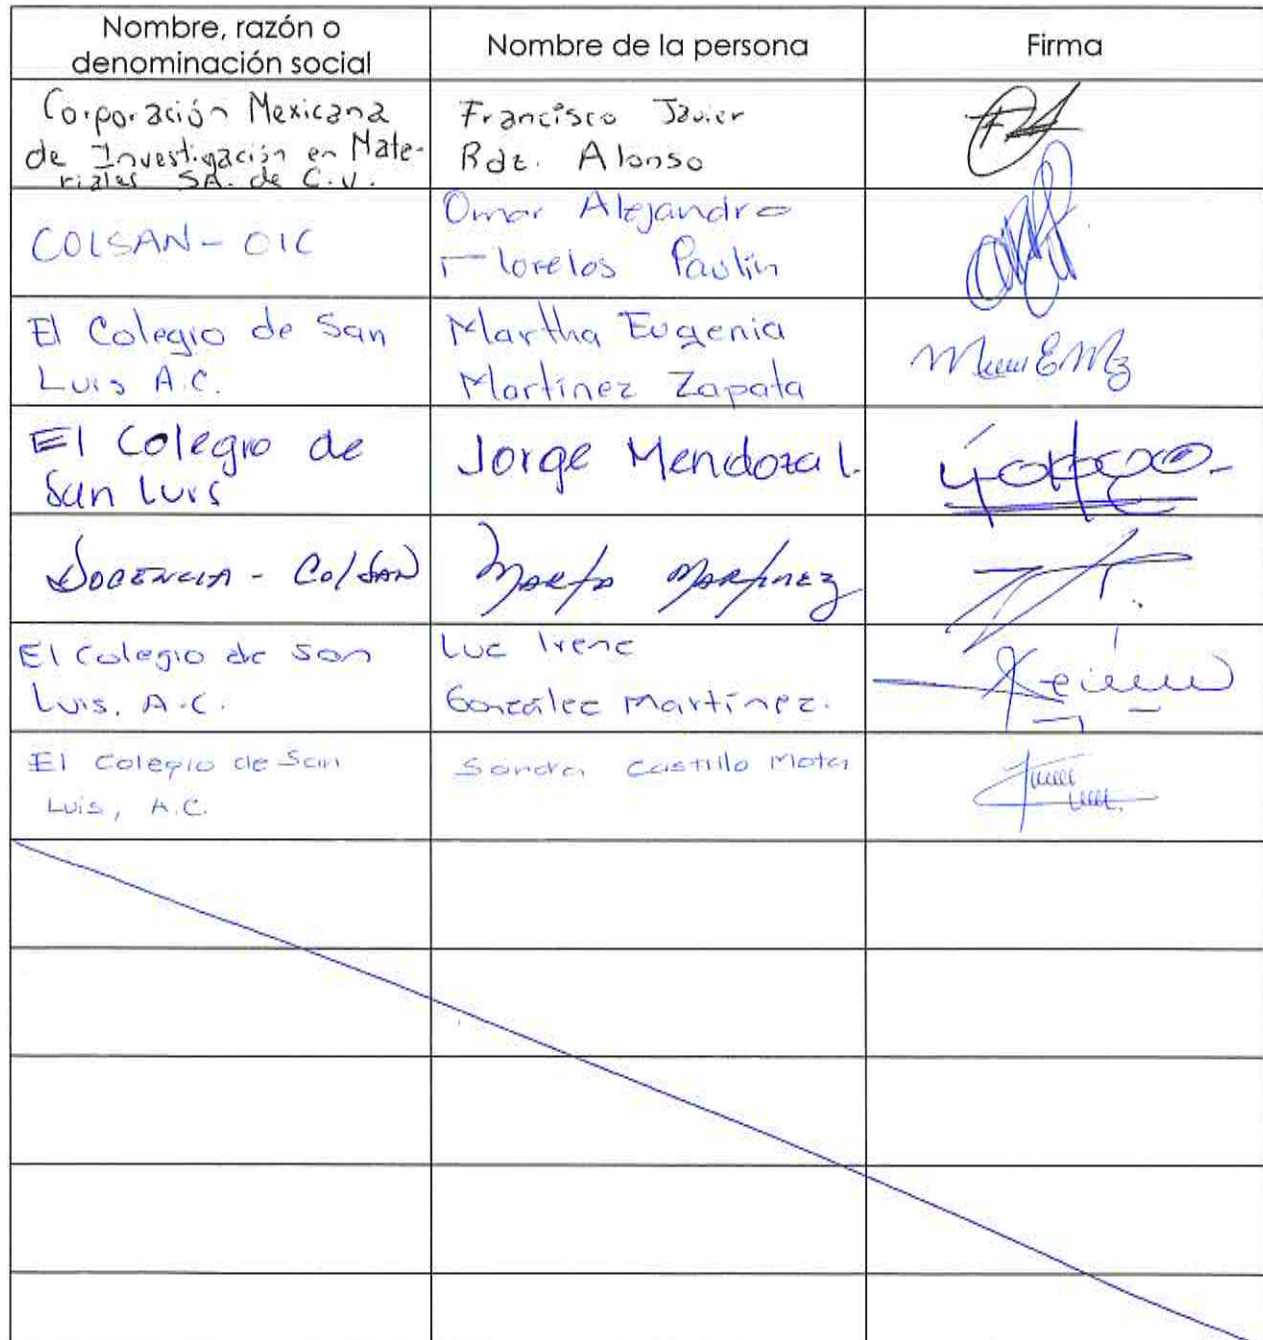 Nombre, razón o
denominación social
Nombre de la persona
Firma
Corporación Mexicana
de Investigación en Mate-
riales SA. de C.V.
Francisco Javier
Rdz. Alonso
COLSAN- OIC
Omar Alejandro
Paulín
El Colegio de San
Luis A.C.
Martha Eugenia
Martínez Zapata
El Colegio de
San Luis
Jorge Mendoza L.
DOCENCIA - ColSAN
Marta Martínez
El Colegio de San
Luis, A.C.
Luz Irene
González Martínez.
El Colegio de San
Luis, A.C.
Sandra Castillo Mota